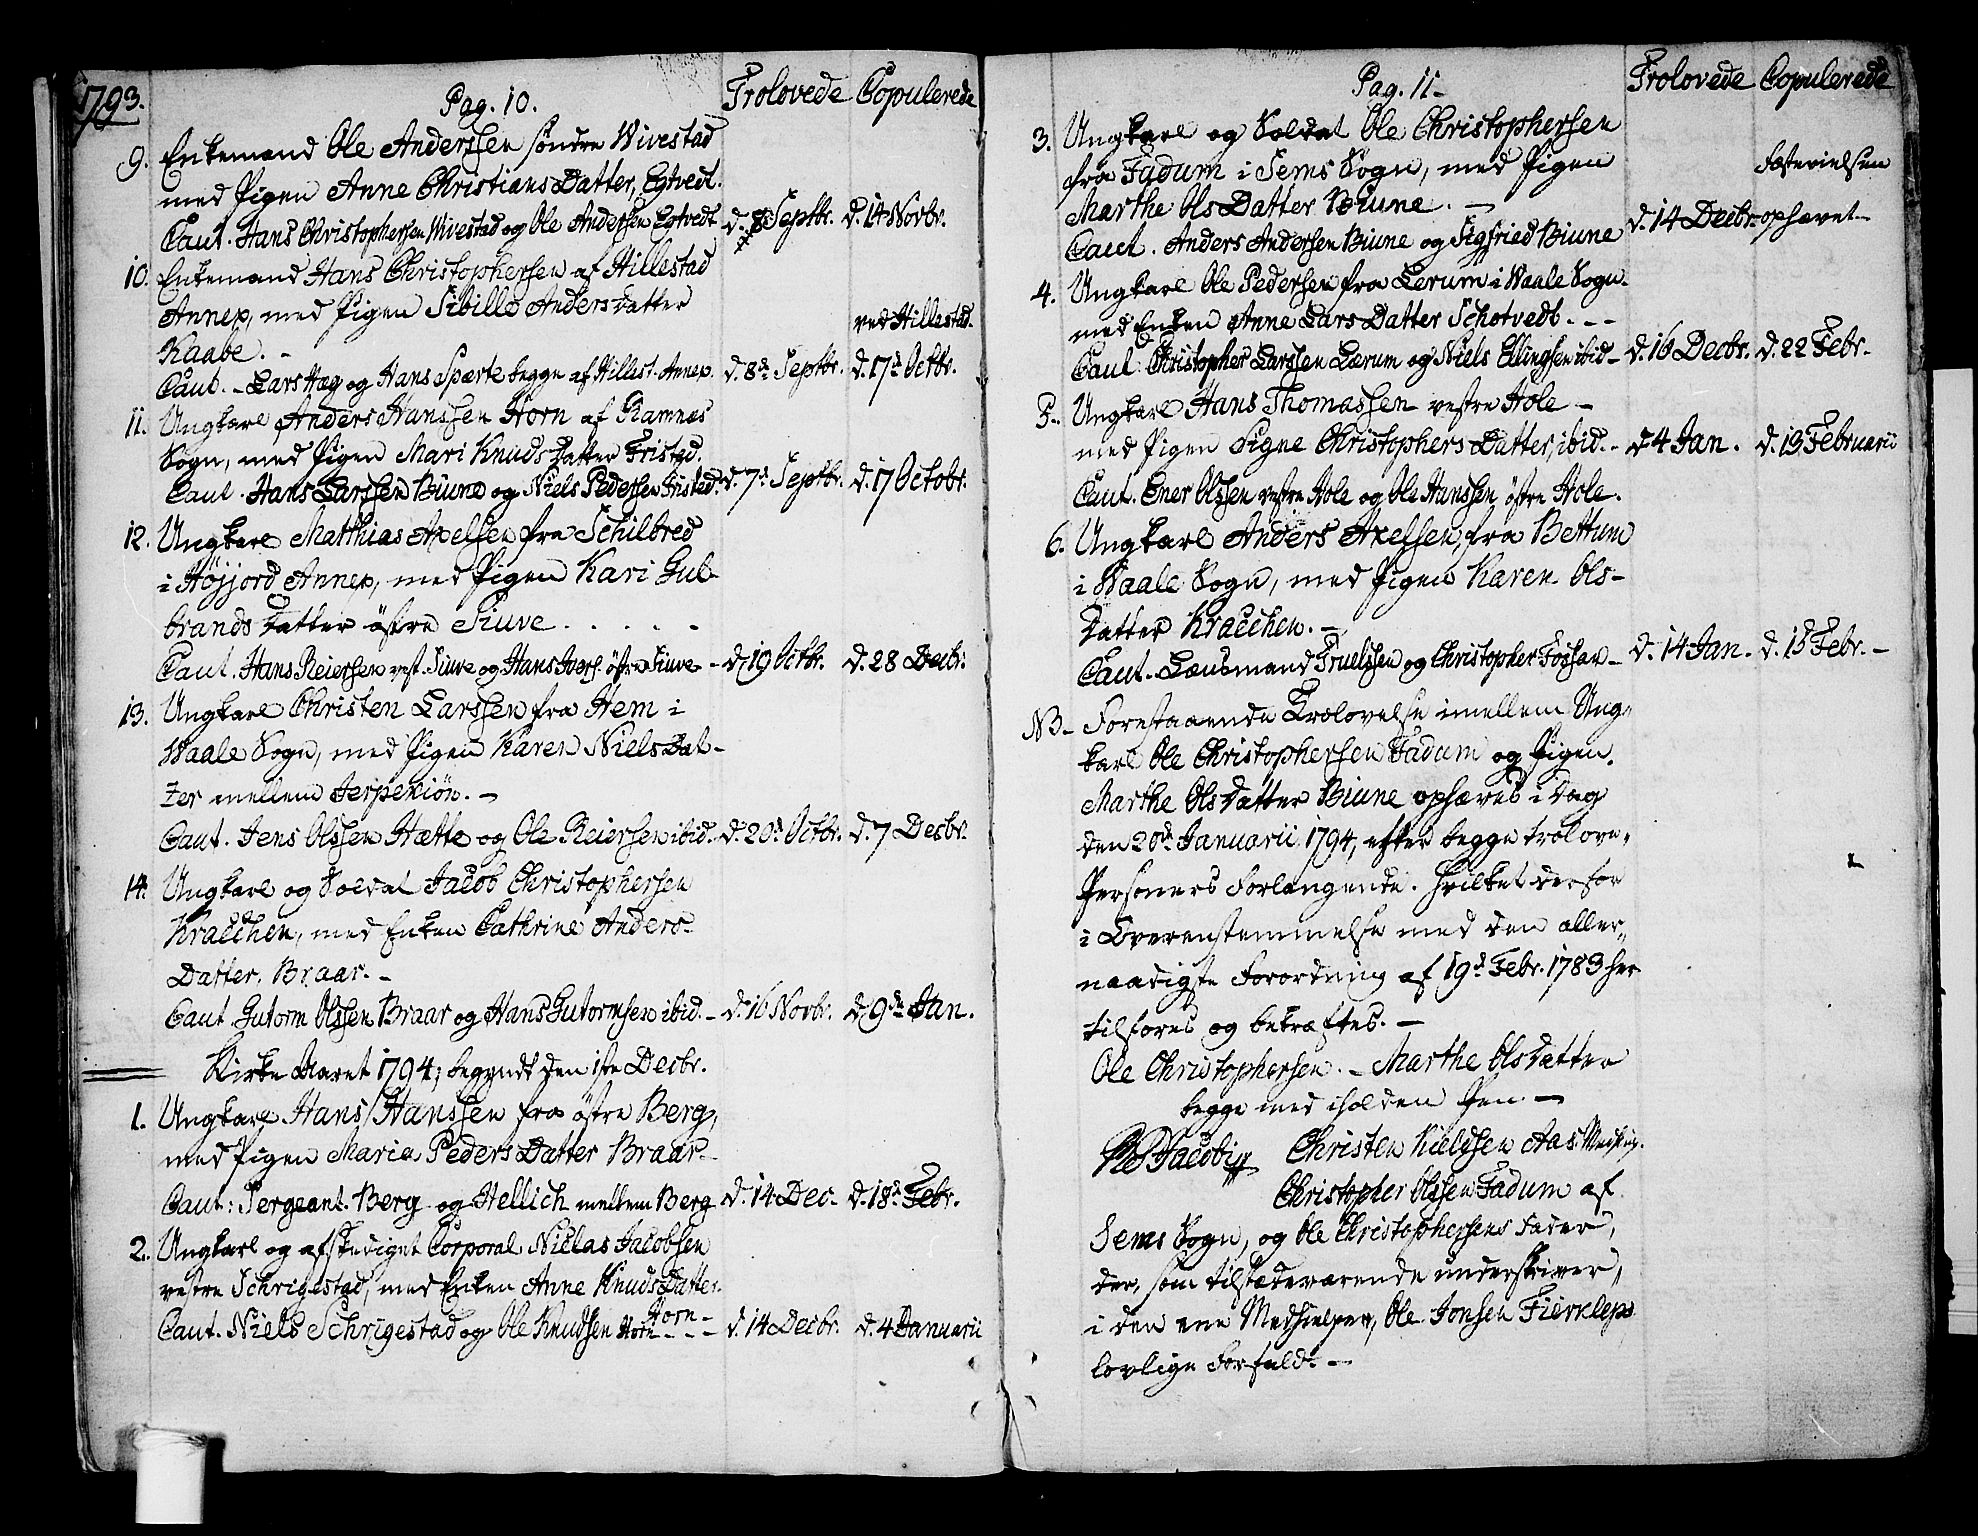 1793.
Pag. 10.
Trolovede Copulerede
9. Enkemand Ole Anderssen söndre Wivestad
med Pigen Anne Christians Datter, Egtvedt.
Caut. Hans Christophersen Wivestad og Ole Andersen Egtvedt d. 8 Septbr. d. 14 Novbr.
10. Enkemand Hans Christophersen af Hillestad
Annex, med Pigen Sibille Anders Datter
ved Hillestad.
Kaabe. -
Caut. - Lars Hæg og Hans Spærte begge af Hillest. Annex. d. 8de Septbr. d. 17d Octbr.
11. Ungkarl Anders Hanssen Horn af Ramnæs
Sogn, med Pigen Mari Knuds Datter Fristad.
Caut. Hans Larssen Biune og Niels Pedersen Fristad. d. 7d Septbr. d. 17 Octobr.
12. Ungkarl Matthias Axelsen fra Schilbred
i Höjjord Annex, med Pigen Kari Gul-
brands Datter östre Siuve. . . . . -
Caut. Hans Reiersen vest. Siuve og Hans Ivers. östre Siuve - d. 19 Octbr. d. 28 Decbr.
13. Ungkarl Christen Larssen fra Hem i
Waale Sogn, med Pigen Karen Niels Dat-
ter mellem Jerpekiön. -
Caut. Jens Olssen Hætte og Ole Reiersen ibid. d. 20d Octbr. d. 7 Decbr.
14. Ungkarl og Soldat Jacob Christophersen
Kracchen, med Enken Cathrine Anders-
Datter, Braar. -
Caut. Gutorm Olssen Braar og Hans Gutormsen ibid. - d. 16 Novbr. d. 9de Jan.
Kirke Aaret 1794, begyndt den 1ste Decbr.
1. Ungkarl Hans Hanssen fra östre Berg,
med Pigen Maria Peders Datter Braar -
Caut: Sergeant Berg og Hellich mellem Berg d. 14 Dec. d. 18d Febr.
2. Ungkarl og afskediget Corporal Niclas Jacobsen
vestre Schrigestad, med Enken Anne Knuds Datter
Horn -
Caut. Niels Schrigestad og Ole Knudsen Horn - - - d. 14 Decbr. d. 4 Januarii
Pag. 11 -
Trolovede Copulerede
3. Ungkarl og Soldat Ole Christophersen
Fæstevielsen
fra Fadum i Sems Sogn, med Pigen
Marthe Ols Datter Biune. - d. 14 Decbr. ophævet -
Caut. Anders Andersen Biune og Sigfried Biune
4. Ungkarl Ole Pedersen fra Lerum i Waale Sogn.
med Enken Anne Lars Datter Schotvedt. - -
Caut. Christopher Larssen Lærum og Niels Ellingsen ibid - d. 16 Decbr. d. 22 Febr.
5. Ungkarl Hans Thomassen vestre Hole -
med Pigen Signe Christophers Datter, ibid. - d. 4 Jan. d. 13 Februarii
Caut. Ener Olssen vestre Hole og Ole Hanssen östre Hole.
6. Ungkarl Anders Axelsen, fra Bettum
i Waale Sogn, med Pigen Karen Ols-
Datter Kracchen. -
Caut. Lænsmand Truelssen og Christopher Fossan - d. 14 Jan. d. 15 Febr. -
NB - Forestaaende Trolovelse imellem Ung-
karl Ole Christophersen Fadum og Pigen
Marthe Ols Datter Biune ophæves i Dag
den 20de Januarii 1794, efter begge trolove-
Personers Forlangende. Hvilket derfor
i Overenstemmelse med den aller-
naadigste Forordning af 19d Febr. 1783 her
tilføres og bekræftes. -
Ole Christophersen. - Marthe Ols Datter
begge med iholden Pen. -
Jacobi Christen Kieldsen Aas Medhj.
Christopher Olssen Fadum af
Sems Sogn, og Ole Christophersens Fader,
der, som tilstædeværende underskriver,
i den ene Medhielper, Ole Jonsen Fierklep
lovlige Forfald. -